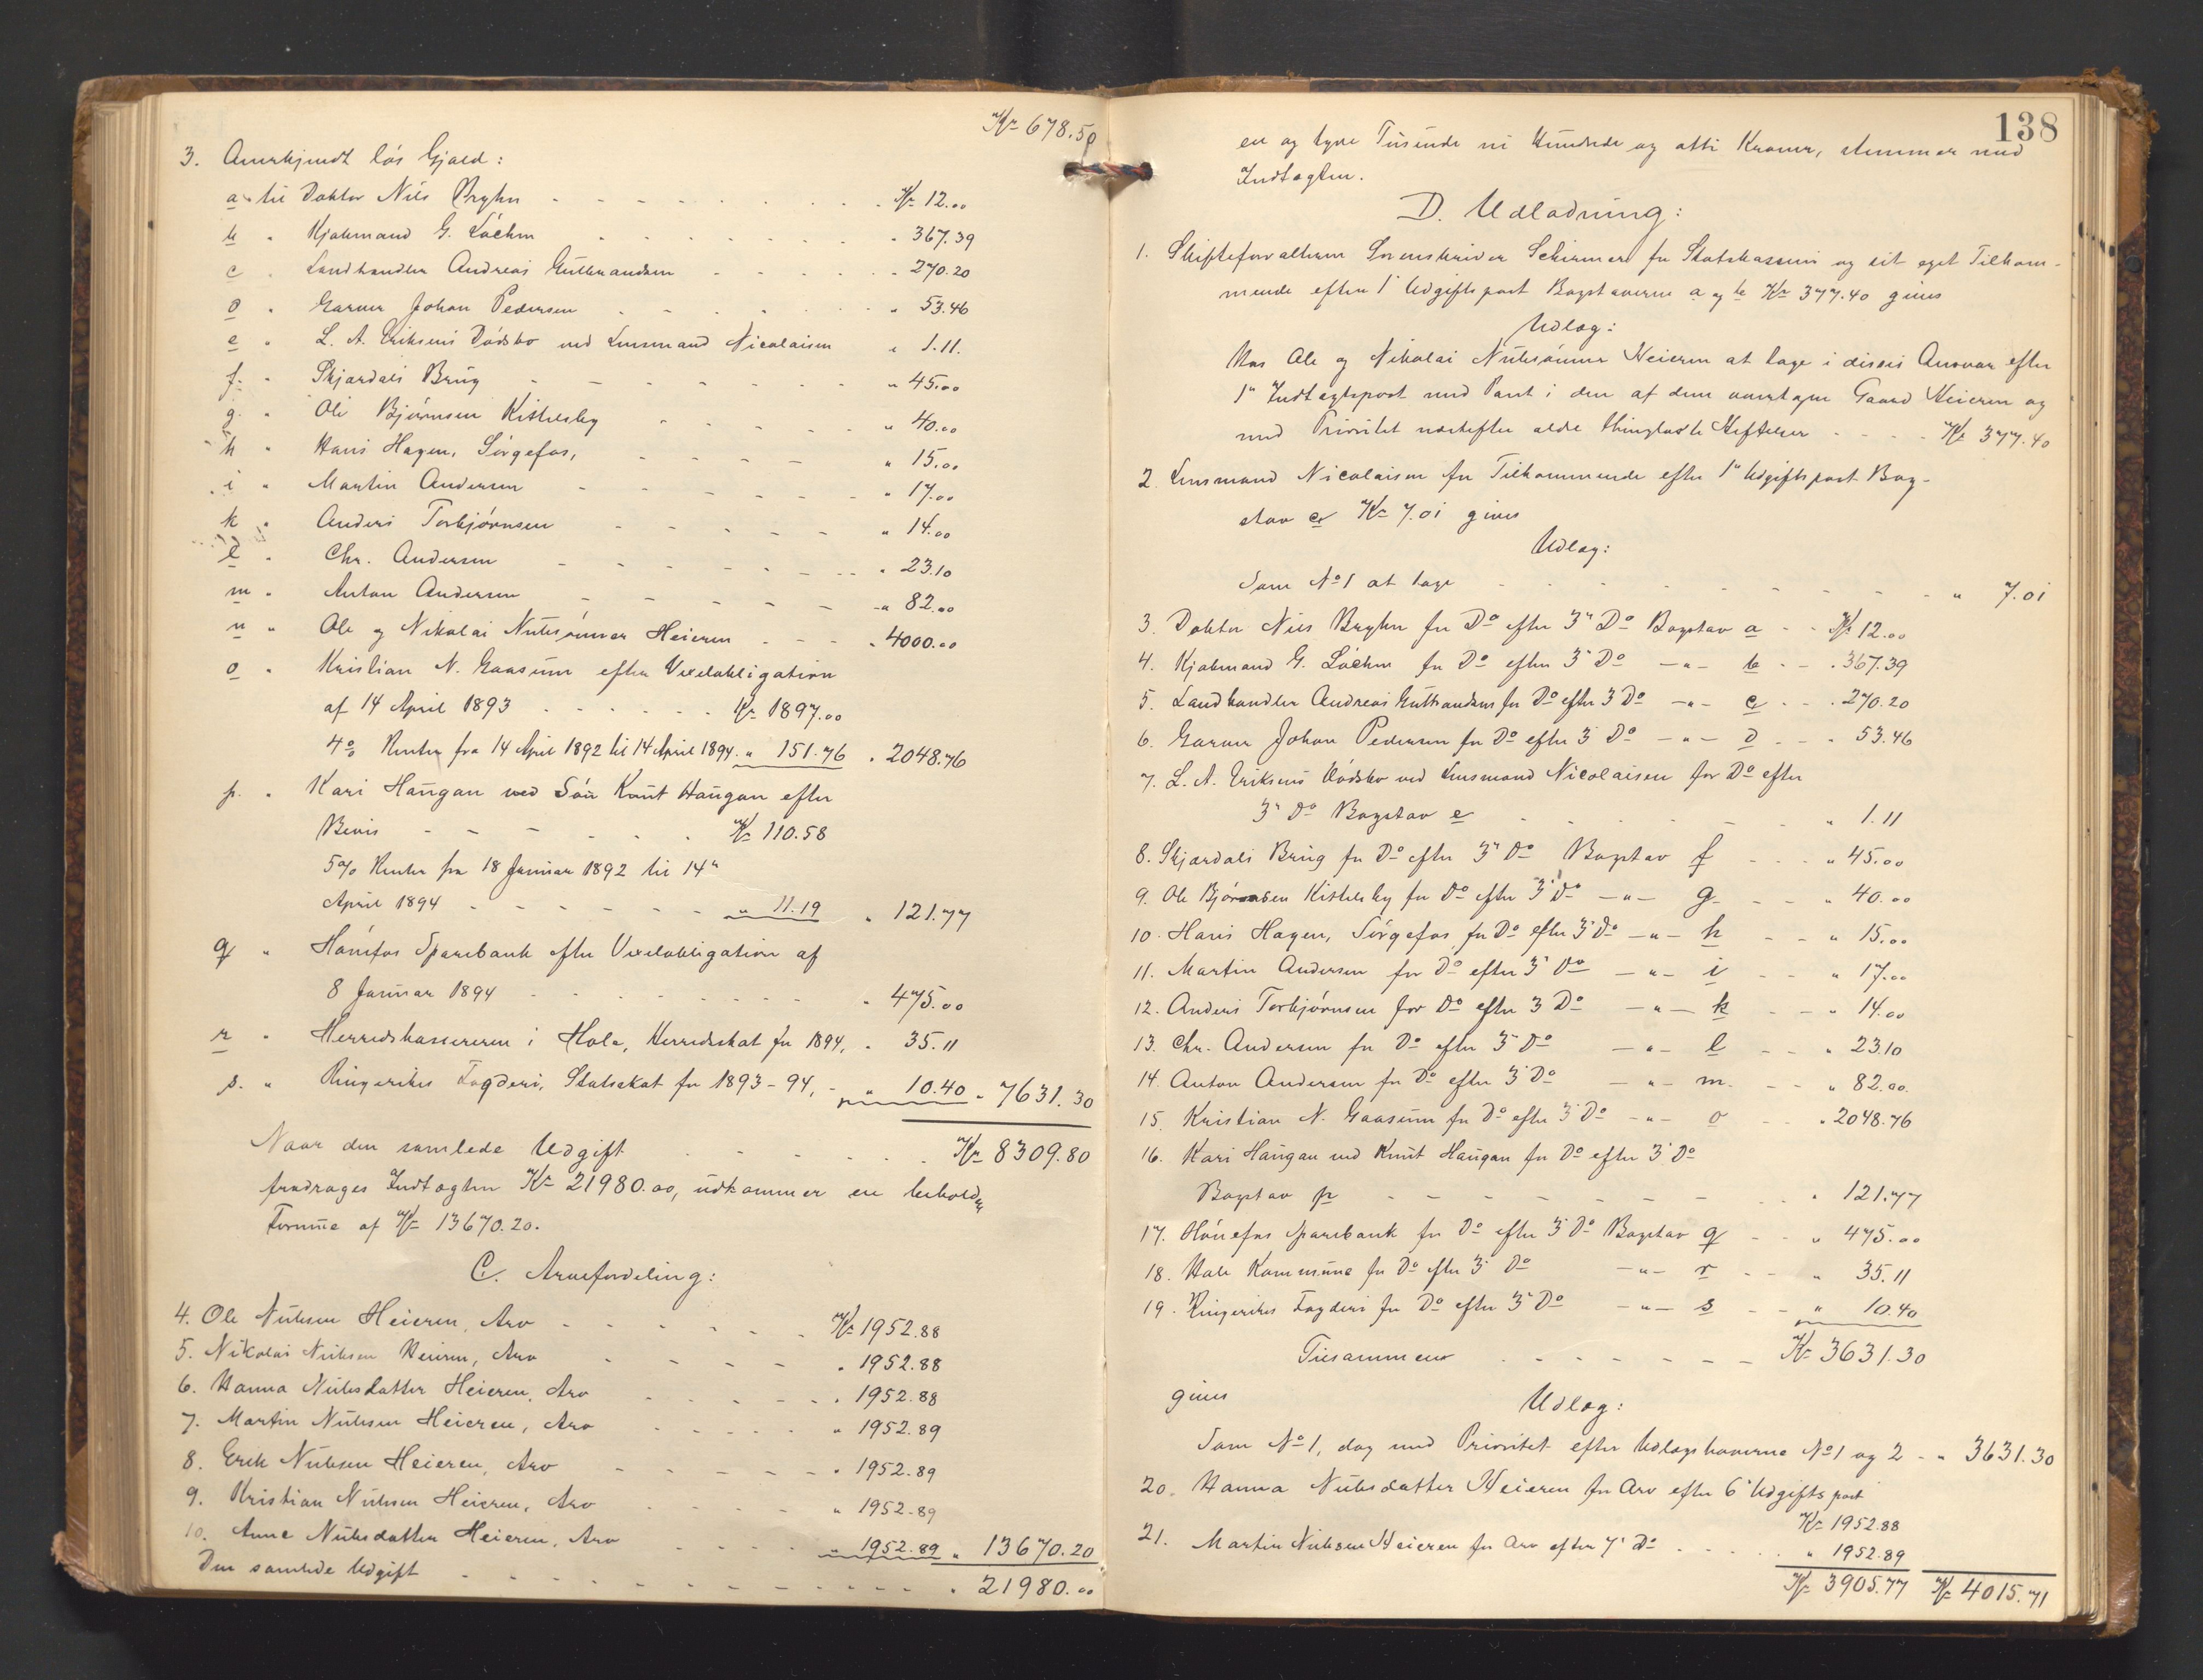 Kr 678.50
3. Anerkjendt løs Gjæld:
a til Doktor Nils Bryhn - - - Kr 12.00
b " Kjøbmand G. Løchen - - - " 367.39
c " Landhandler Andreas Gulbrandsen - - - " 270.20
d " Garver Johan Pedersen - - - " 53.46
e " L. A. Eriksens Dødsbo ved Lensmand Nicolaisen " 1.11.
f. " Skjærdals Brug - - - " 45.00
g. " Ole Bjørnsen Kittelsby - - - " 40.00
h " Hans Hagen, Sørgefos, - - - " 15.00
i " Martin Andersen - - - " 17.00
k " Anders Torbjørnsen - - - " 14.00
l " Chr. Andersen - - - " 23.10
m " Anton Andersen - - - " 82.00
n " Ole og Nikolai Nubsønner Heieren - - - " 4000.00
o " Kristian N. Gaasum efter Vexelobligation
af 14 April 1893 - - - Kr 1897.00
4% Renter fra 14 April 1892 til 14 April 1894 " 151.76 " 2048.76
p. " Kari Haugan ved Søn Knut Haugan efter
Bevis - - - Kr 110.58
5% Renter fra 18 Januar 1892 til 14"
April 1894 - - - " 11.19 " 121.77
q " Hønefos Sparebank efter Vexelobligation af
8 Januar 1894 - - - " 475.00
r " Herredskassereren i Hole, Herredsskat for 1894, " 35.11
s. " Ringerikes Fogderi, Statsskat for 1893-94, - " 10.40 " 7631.30
Naar den samlede Udgift - - - Kr 8309.80
fradrages Indtægten Kr 21980.00, udkommer en beholden
Formue af Kr 13670.20.
C. Arvefordeling:
4. Ole Nubsen Heieren, Arv - - - Kr 1952.88
5. Nikolai Nubsen Heieren, Arv - - - " 1952.88
6. Hanna Nubsdatter Heieren, Arv - - - " 1952.88
7. Martin Nubsen Heieren, Arv - - - " 1952.89
8. Erik Nubsen Heieren, Arv - - - " 1952.89
9. Kristian Nubsen Heieren, Arv - - - " 1952.89
10. Anne Nubsdatter Heieren, Arv - - - " 1952.89 " 13670.20
Den samlede Udgift - - - " 21980.00
138
en og tyve Tusunde ni Hundrede og otti Kroner, stemmer med
Indtægten.
D. Udlodning:
1. Skifteforvalteren Sorenskriver Schirmer for Statskassen og sit eget Tilkom-
mende efter 1" Udgiftspost Bogstaverne a og b Kr 377.40 gives
Udlæg:
Hos Ole og Nikolai Nubsønner Heieren at tage i disses Ansvar efter
1" Indtægtspost med Pant i den af dem overtagne Gaard Heieren og
med Prioritet næstefter ældre thinglæste Heftelser - - - Kr 377.40
2. Lensmand Nicolaisen for Tilkommende efter 1" Udgiftspost Bog-
stav c Kr 7.01 gives
Udlæg:
Som No 1 at tage - - - " 7.01
3. Doktor Nils Bryhn for Do efter 3" Do Bogstav a - - Kr 12.00
4. Kjøbmand G. Løchen for Do efter 3" Do -"- b - - " 367.39
5. Landhandler Andreas Gulbrandsen for Do efter 3 Do -"- c - - " 270.20
6. Garver Johan Pedersen for Do efter 3" Do -"- d - - " 53.46
7. L. A. Eriksens Dødsbo ved Lensmand Nicolaisen for Do efter
3" Do Bogstav e - - - " 1.11
8. Skjærdals Brug for Do efter 3" Do Bogstav f - - " 45.00
9. Ole Bjørnsen Kittelsby for Do efter 3" Do -"- g - - " 40.00
10. Hans Hagen, Sørgefos, for Do efter 3" Do -"- h - - " 15.00
11. Martin Andersen for Do efter 3" Do -"- i - - " 17.00
12. Anders Torbjørnsen for Do efter 3 Do -"- k - - " 14.00
13. Chr. Andersen for Do efter 3" Do -"- l - - " 23.10
14. Anton Andersen for Do efter 3" Do -"- m. - - " 82.00.
15. Kristian N. Gaasum for Do efter 3" Do -"- o - - " 2048.76
16. Kari Haugan ved Knut Haugan for Do efter 3" Do
Bogstav p - - - " 121.77
17. Hønefos Sparebank for Do efter 3" Do Bogstav q - - " 475.00
18. Hole Kommune for Do efter 3" Do -"- r - - " 35.11
19. Ringerikes Fogderi for Do efter 3" Do -"- s - - " 10.40
Tilsammen - - - Kr 3631.30
gives Udlæg:
Som No 1, dog med Prioritet efter Udlægshaverne No 1 og 2 - " 3631.30
20. Hanna Nubsdatter Heieren for Arv efter 6" Udgiftspost
Kr 1952.88
21. Martin Nubsen Heieren for Arv efter 7" Do - - - " 1952.89
Kr 3905.77 Kr 4015.71